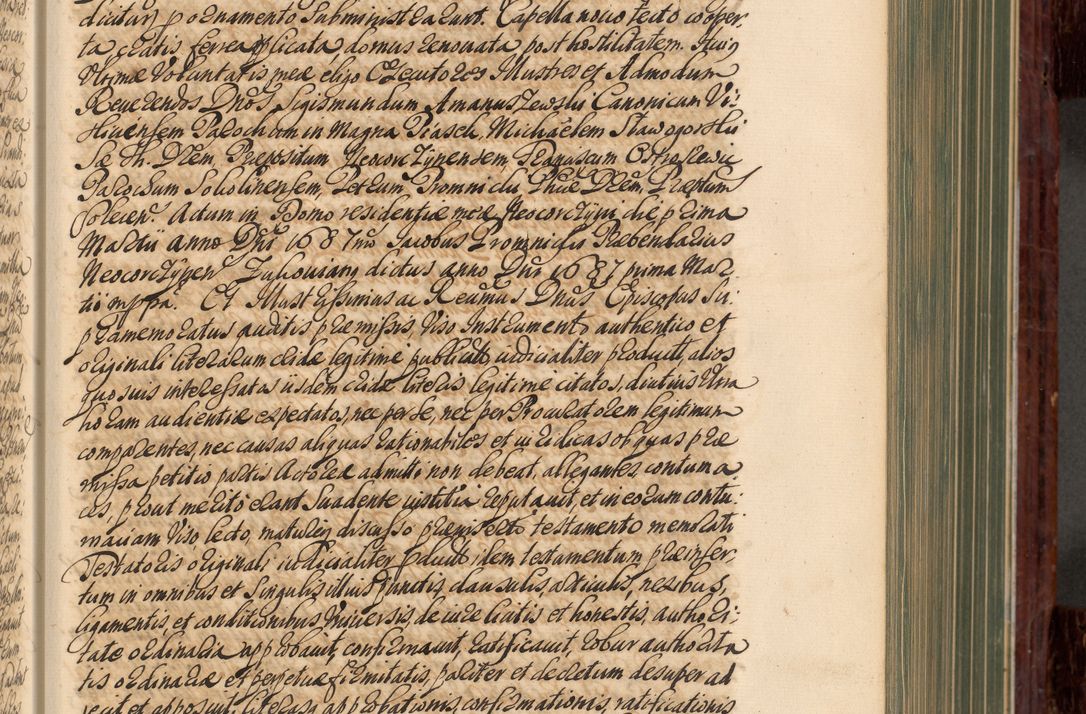 dicitur) pro ornamento subministrarunt. Capella novo tecto cooper
ta, cratis ferrea applicata, domus renovata, post hostilitatem. Huiq
Ultimæ Voluntatis meæ eligo Executores Illustres et Admodum
Reverendos Dnos Sigismundum Amanuszewski Canonicum Vi:
slicensem Parochum in Magna Piasek, Michaelem Stawogorski
Sæ Th. Drem, Præpositum Neocorczynensem, Franciscum Ostroszewic
Parochum Sokolinensem, Petrum Promnicki Phiæ Drem, Præptum
Solecen. Actum in Domo residentiæ meæ Neocorczyni die prima
Martii Anno Dni 1687mo Jacobus Promnicki Præbendarius
Neocorczynen Zukowiany dictus anno Dni 1687 prima Mar
tii mppa. Et Illustrissimus ac Reumus Dnus Episcopus Su:
præmemoratus auditis præmissis, viso Instrumento authentico et
originali literarum cridæ legitime publicat judicialiter product, alios
quosvis interessatos iisdem cridæ literis legitime citatos, diutius Ultra
horam audientiæ expectatos, nec per se, nec per Procuratorem legitimum
comparentes, nec causas aliquas rationabiles et juridicas ob quas præ
missa petitio partis Actoreæ admitti non debeat, allegantes, contuma
ces, prout merito erant suadente justitia reputavit, et in eorum contu:
maciam viso lecto, matureq discusso præinserto testamento memorati
Testatoris originali judicialiter producto, idem testamentum præinser
tum in omnibus et singulis illius punctis, clausulis, articulis, nexibus,
ligamentis, et conditionibus Universis, de jure licitis et honestis, authori:
tate ordinaria approbavit, confirmavit, ratificavit, robur authorita
tis ordinariæ et perpetuæ firmitatis, pariter et decretum desuper ad
jecit et apposuit, literasq approbationis, confirmationis, ratificationis